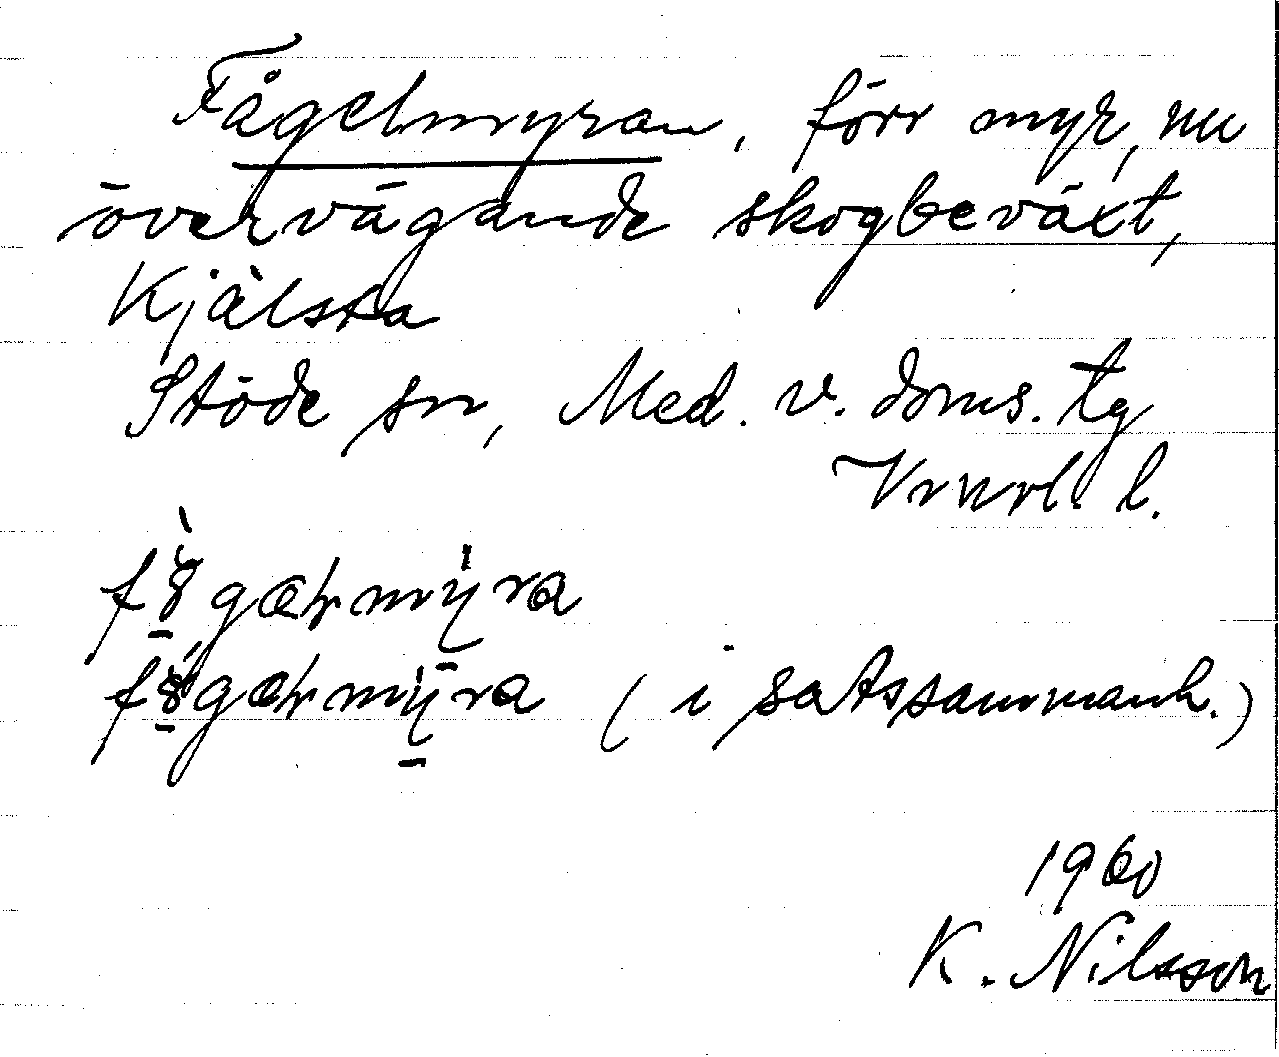 Fågelmyran, förr myr, nu
övervägande skogbeväxt,
Kjälsta
Stöde sn, Med. v. doms. tg
Vnorl. l.
(i satssammanh.)
1960
K. Nilsson